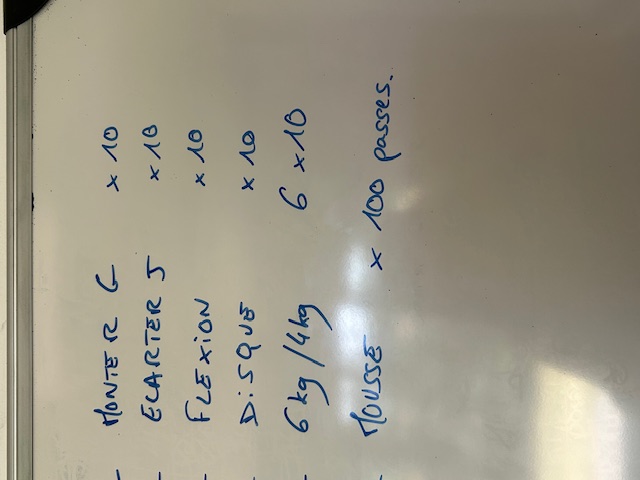 - MONTER G x 10
- ECARTER J x 10
- FLEXION x 10
- DISQUE x 10
- 6kg/4kg 6 x 10
- MOUSSE x 100 passes.